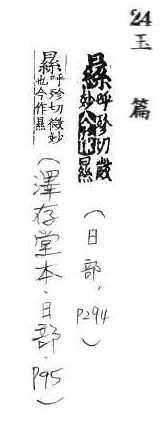 24
玉篇
㬎呼殄切微妙今作㬎(日部,P294)
㬎呼殄切微妙也今作㬎(澤存堂本.日部.P95)